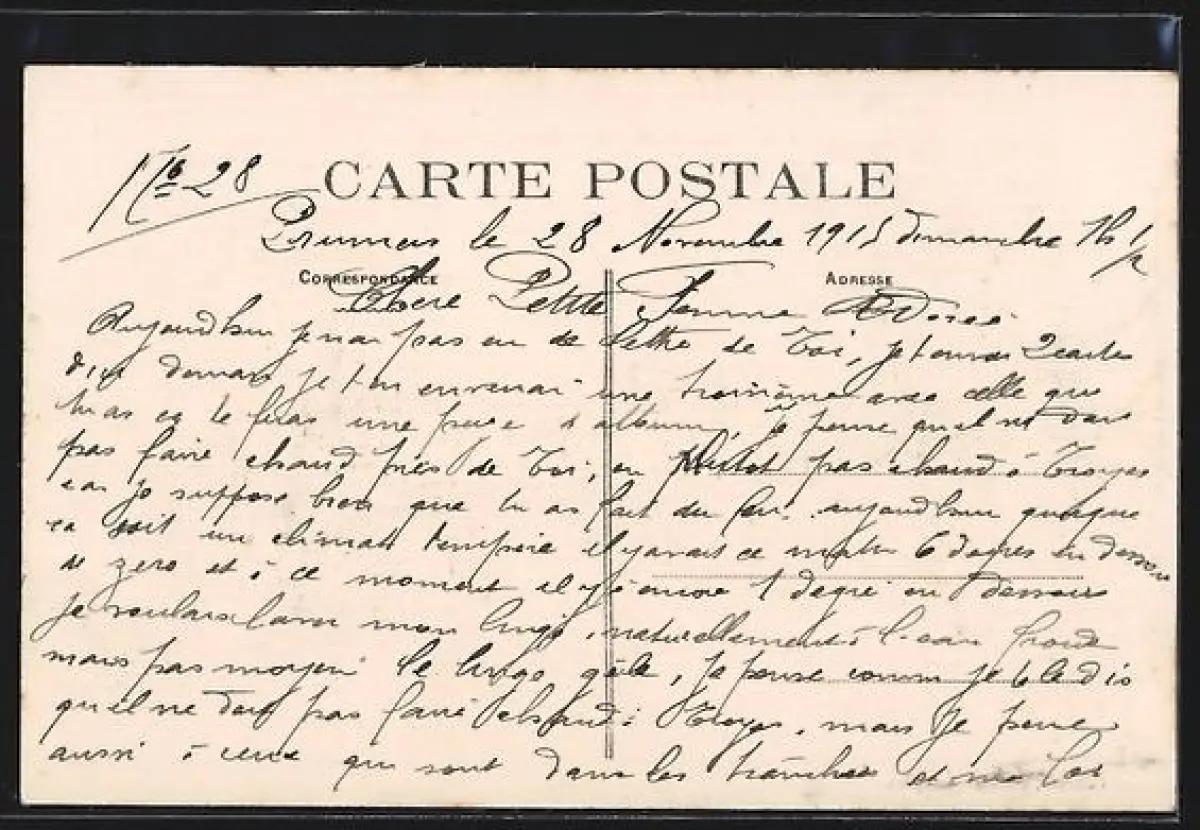 No 28
CARTE POSTALE
le 28 Novembre 1915 dimanche 1h 1/2
CORRESPONDANCE
ADRESSE
Chere Petite Femme Adorée
Aujourdhui je nai pas eu de lettre de Toi, je tenvoi 2 cartes
demain je ten enverrai une troisième avec celle que
tu as ça te feras une d'album, Je pense quil ne doit
pas faire chaud près de Toi, ou plutot pas chaud à Troyes
car je suppose bien que tu as fait du feu. aujourdhui quoique
ça soit un climat tempéré il y avait ce matin 6 degres en dessou
de zero et à ce moment il y a encore 1 degré en dessous
je voulais laver mon linge, naturellement à l'eau froide
mais pas moyen le linge gèle, Je pense comme je te le dis
quil ne doit pas faire chaud à Troyes, mais je pense
aussi à ceux qui sont dans les tranchées et ma foi